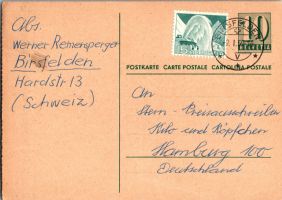 Abs.
Werner Remensperger
Birsfelden
Hardstr 13
(Schweiz)
10
HELVETIA
POSTKARTE CARTE POSTALE CARTOLINA POSTALE
An
Stern-Preisausschreiben
Kilo und Köpfchen
Hamburg 100
Deutschland